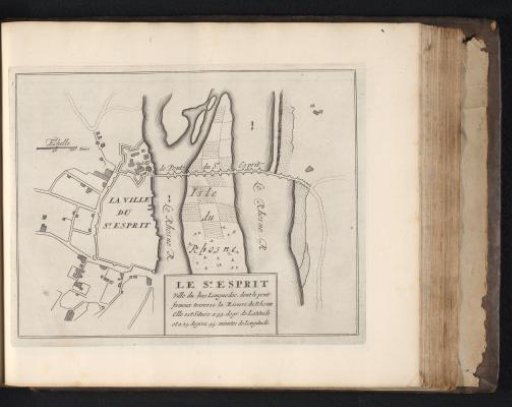 Echelle
le Pont du St. Esprit
LA VILLE
DU
St. ESPRIT
Isle
du
Rhosne
Le Rhosne R.
Le Rhosne R.
LE St. ESPRIT
Ville du Bas Languedoc, dont le pont
fameux traverse la Riviere du Rhosne
Elle est Située a 44 degr. de Latitude
et a 25 degrez 49 minutes de Longitude